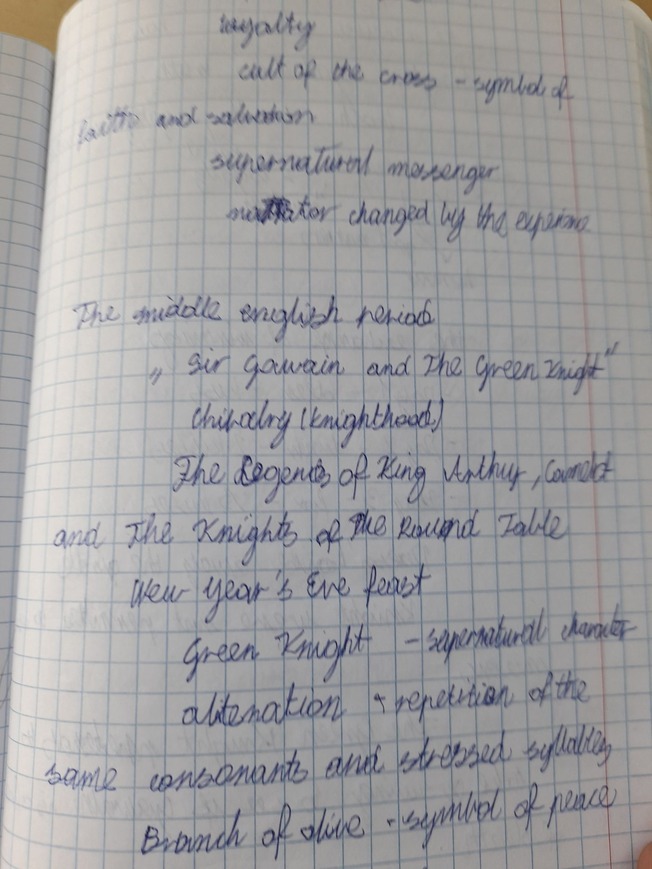 loyalty
cult of the cross - symbol of
faith and salvation
supernatural messenger
narrator changed by the experience
The middle english period
„ Sir Gawain and The Green Knight"
Chivalry (knighthood)
The Legends of King Arthur, Camelot
and The Knights of The Round Table
New Year's Eve feast
Green Knight - supernatural character
aliteration + repetition of the
same consonants and stressed syllables
Branch of olive - symbol of peace